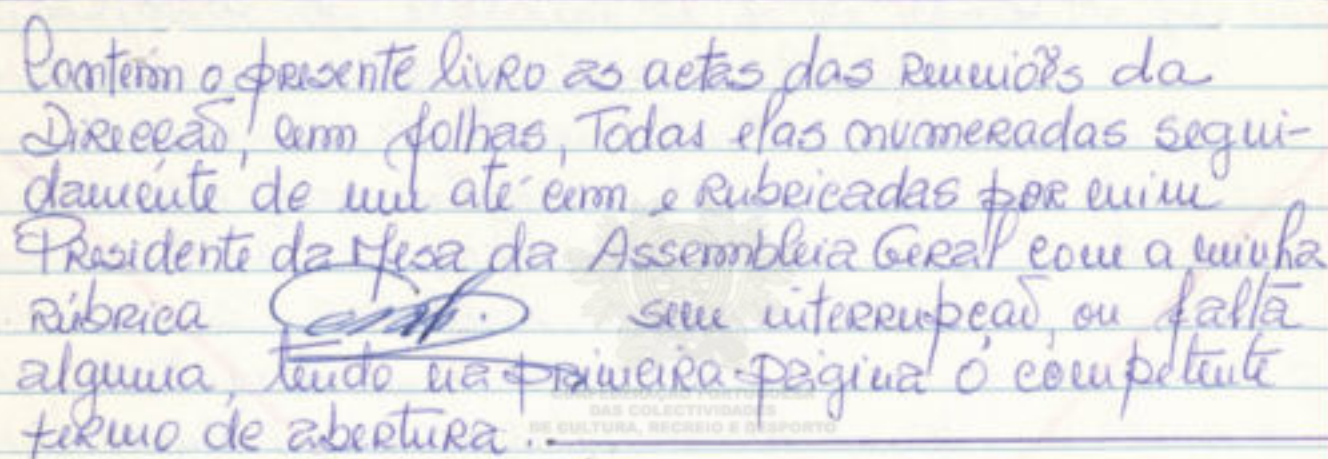 Contém o presente livro as actas das Reuniões da
Direcção, cem folhas, Todas elas numeradas segui-
damente de um até cem e Rubricadas por mim
Presidente da Mesa da Assembleia Geral com a minha
Rúbrica sem interrupção, ou falta
alguma, tendo na primeira página o competente
termo de abertura.
CONFEDERAÇÃO PORTUGUESA
DAS COLECTIVIDADES
DE CULTURA, RECREIO E DESPORTO